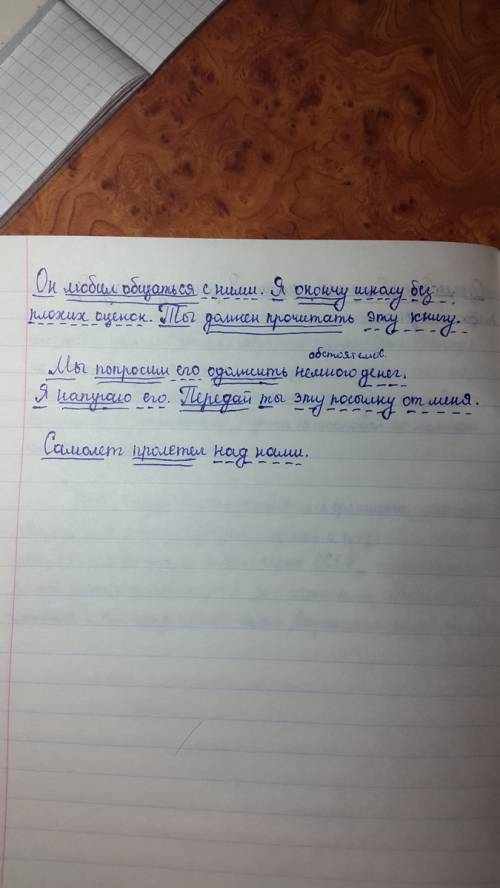 Он любил общаться с ними. Я окончу школу без
плохих оценок. Ты должен прочитать эту книгу.
обстоятелов.
Мы попросим его одолжить немного денег.
Я напугаю его. Передай ты эту посылку от меня.
Самолет пролетел над нами.